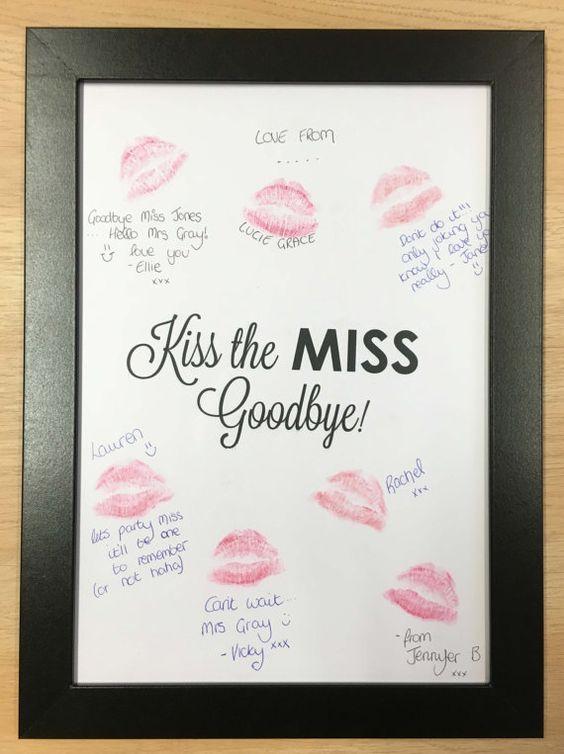 LOVE FROM
.....
Goodbye Miss Jones
... Hello Mrs Gray!
love you
- Ellie
xxx
LUCIE GRACE
Dont do it!!!
only joking ya
know i love ya
really - Jane
Kiss the MISS
Goodbye!
Lauren
lets party miss
it'll be one
to remember
(or not haha)
Rachel
xxx
Can't wait...
Mrs Gray
- Vicky xxx
- from
Jennyfer B
xxx